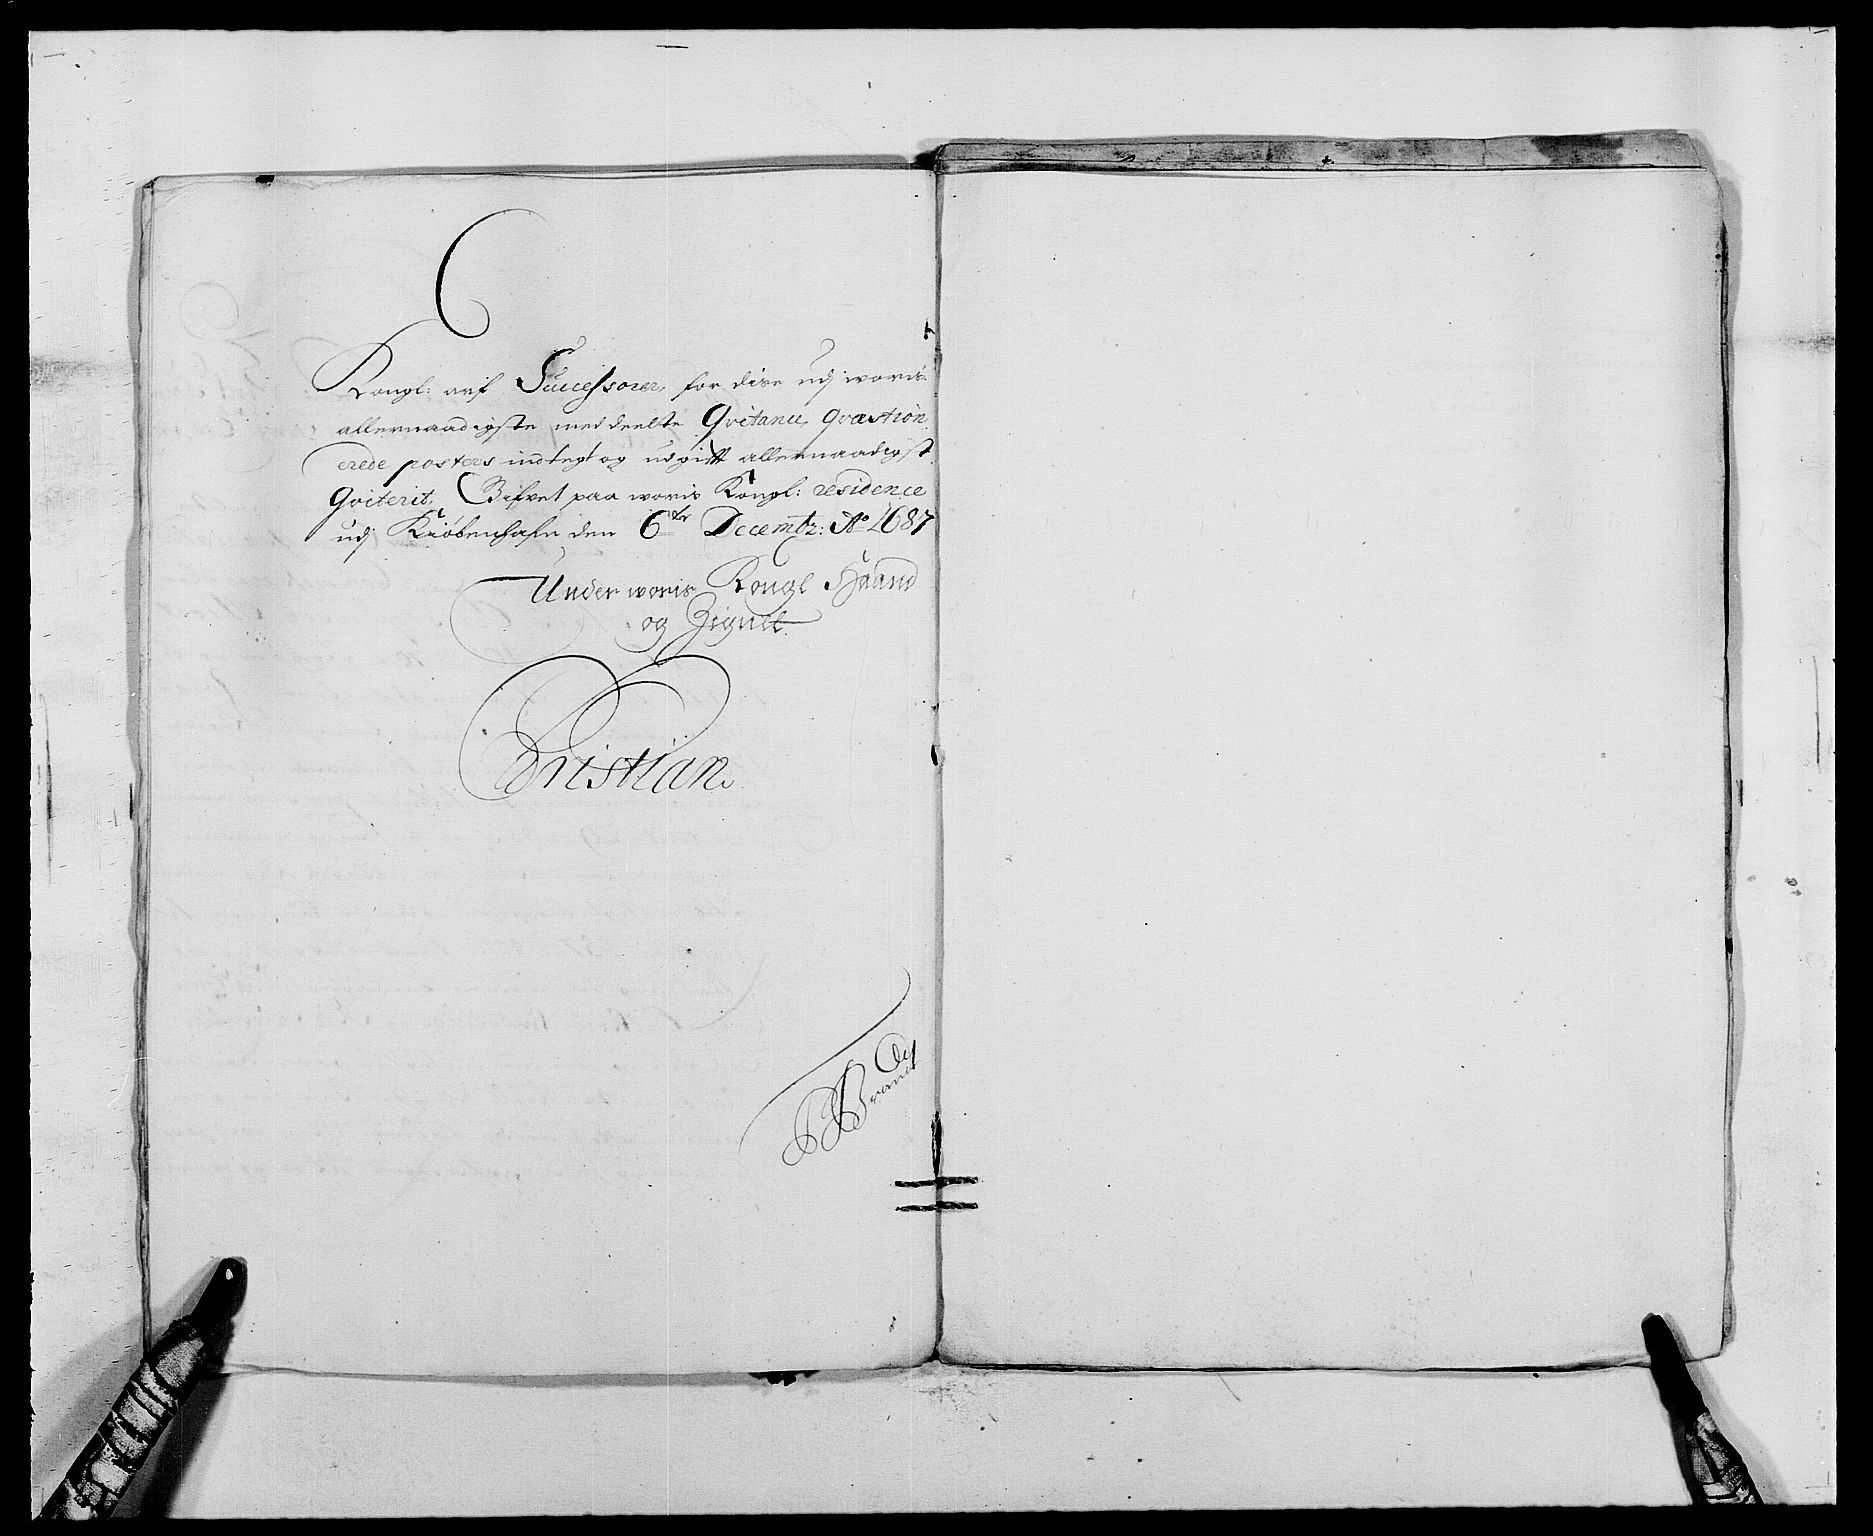 Kongl: arf Successorer, for dise udj woris
allernaadigste meddeelte Qvitance, Qvæstion
erede posters indtegt og udgift allernaadigst
Qviterit, Gifvet paa woris Kongl: residence
udj Kiøbenhafn den 6te Decembr: Ao 1687
Under woris Kongl Haand
og Zignet.
Christian.
PBrandt